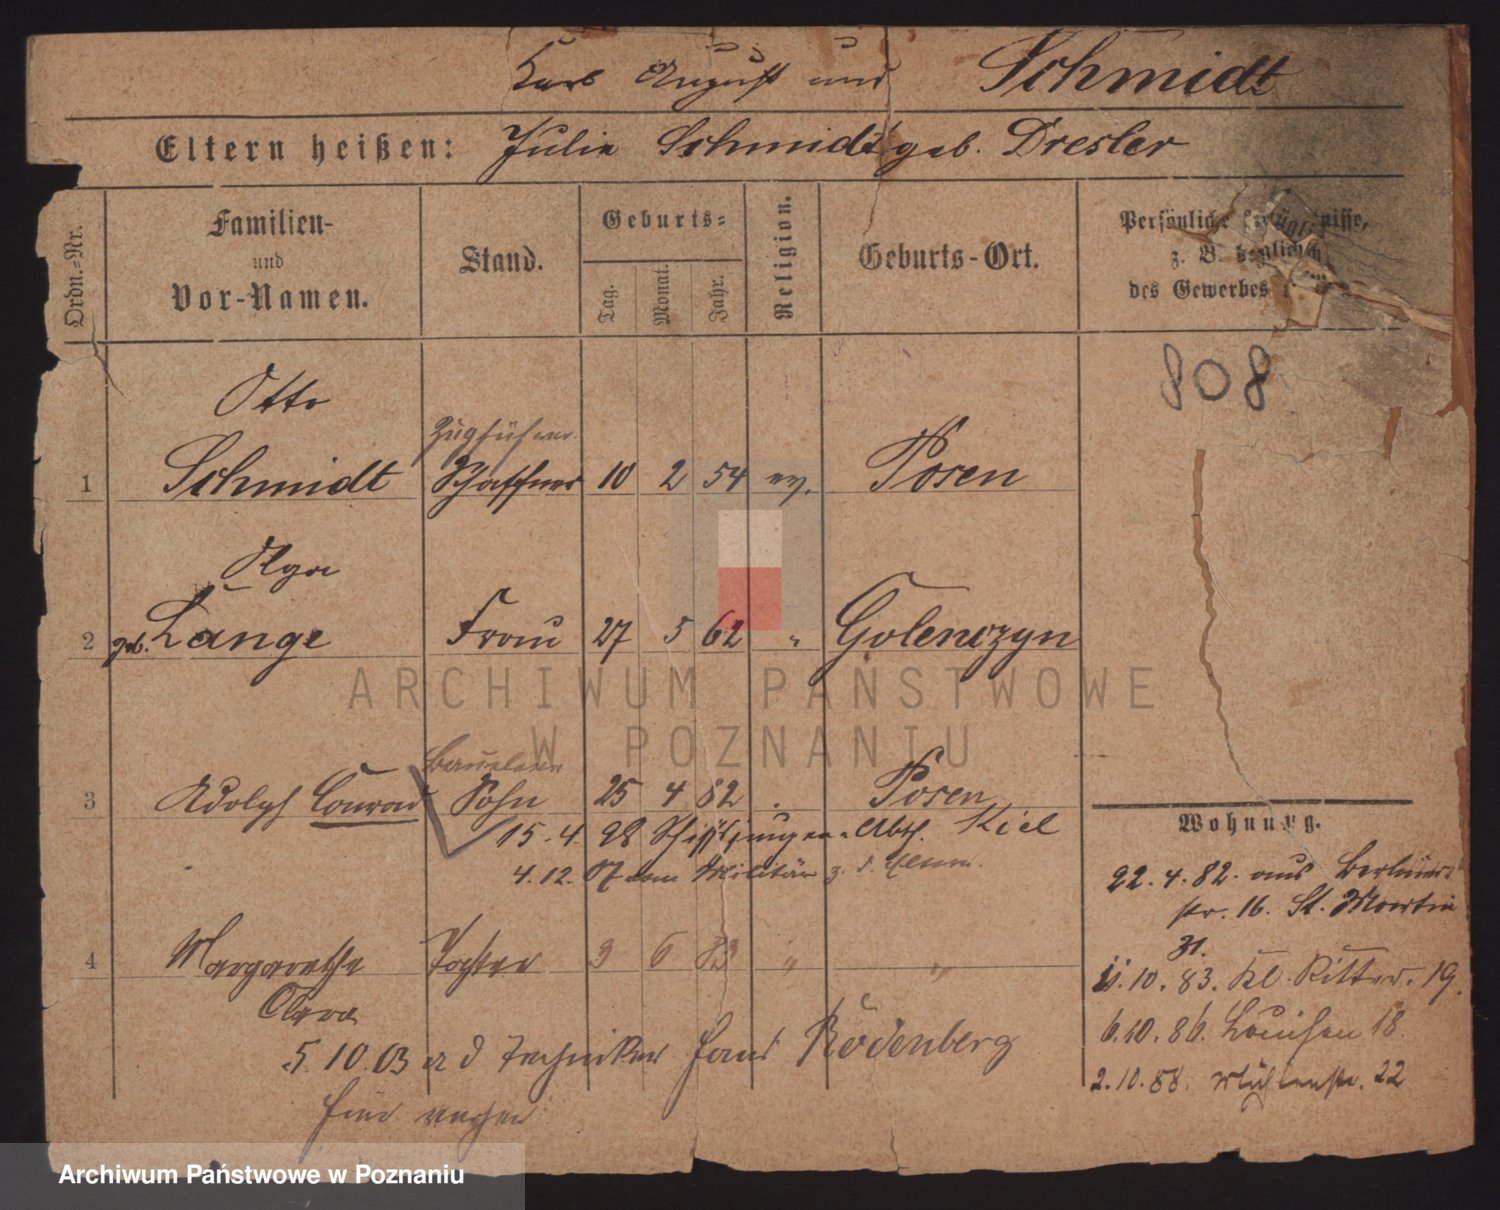 Karl August und Schmidt
Eltern heißen: Julie Schmidt geb. Dresler
Ordn.-Nr.
Familien- und Vor-Namen.
Stand.
Geburts=
Tag. Monat. Jahr.
Religion.
Geburts-Ort.
Persönliche
z. B.
des Gewerbes
808
Otto
Zugführer
1 Schmidt Schaffner 10 2 54 ev. Posen
Olga
2 geb. Lange Frau 27 5 62 " Golenczyn
3 Adolph Conrad Sohn 25 4 82 . Posen
15.4.98 Schiffsjungen-Abth. Kiel
4.12.07 vom Militär z. d. Eltern.
4 Margarethe Tochter 3 6 83 " "
Clara
5.10.03 Techniker Rodenberg
Wohnung.
22.4.82. aus Berliner
str. 16. St. Martin
31.
11.10.83. Kl. Ritter. 19.
6.10.86. Louisen 18.
2.10.88. Mühlenstr. 22
ARCHIWUM PAŃSTWOWE
W POZNANIU
Archiwum Państwowe w Poznaniu